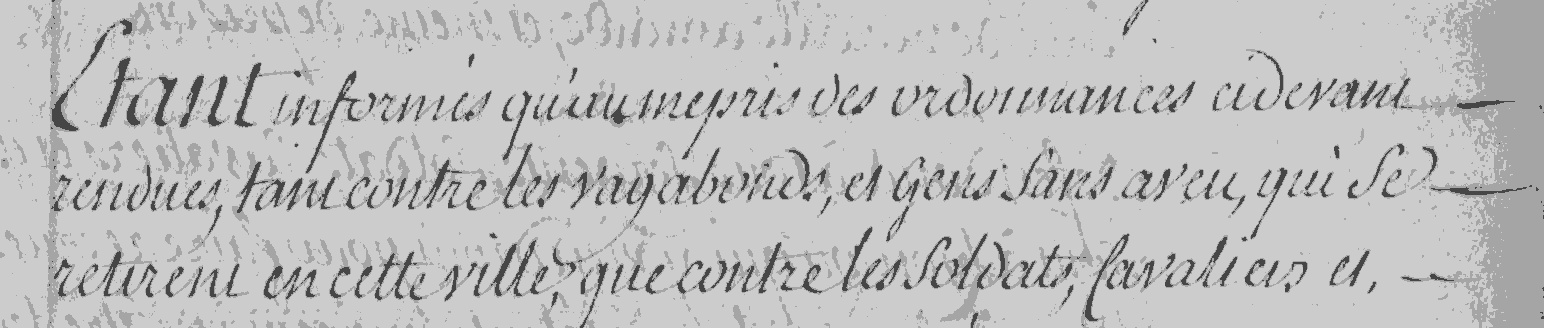 Etant informés qu'au mepris des ordonnances cidevant
rendues, tant contre les vagabonds, et gens sans aveu, qui se
retirent en cette ville, que contre les soldats, cavaliers et,